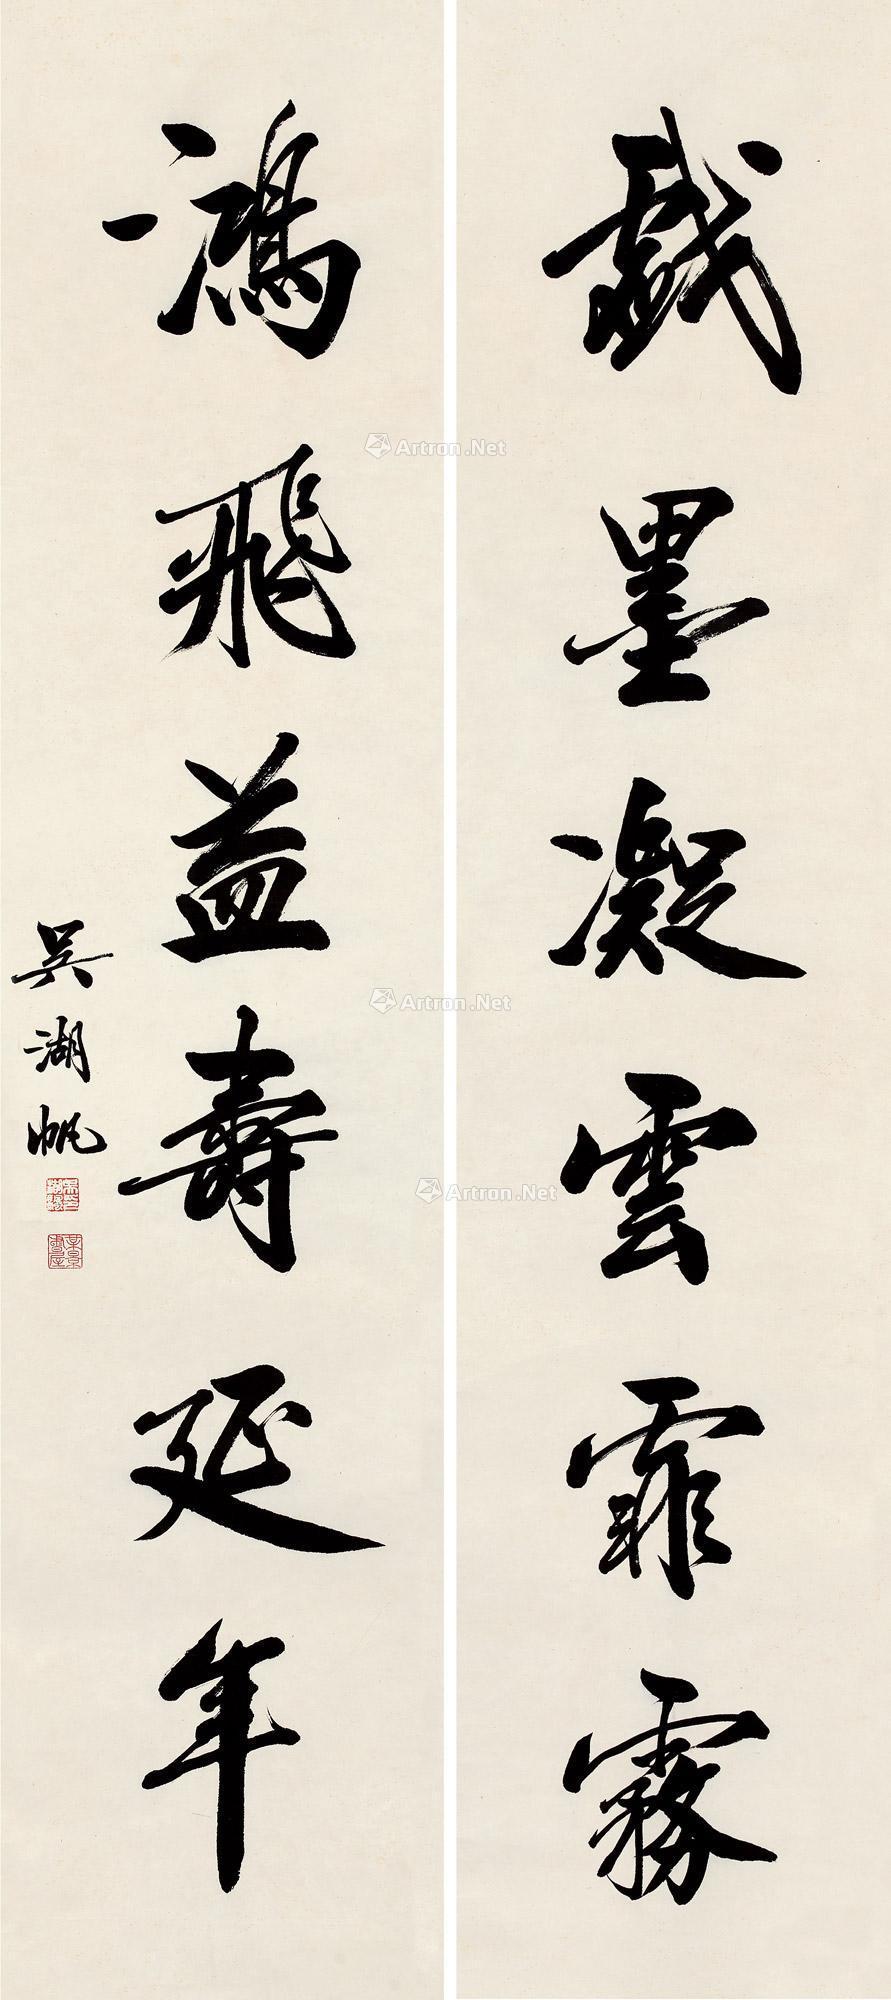 戲墨凝雲霏霧
鴻飛益壽延年
吳湖帆
Artron.Net
Artron.Net
Artron.Net